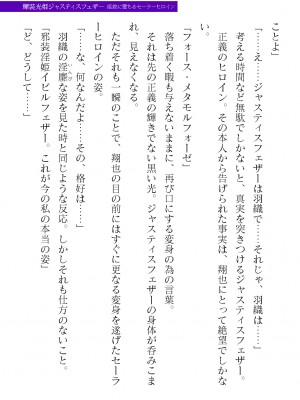 輝装光姫ジャスティスフェザー
淫欲に堕ちるセーラーヒロイン
ことよ」
「……え……ジャスティスフェザーは羽織で……それじゃ、羽織は……」
考える時間など無駄でしかないと、真実を突きつけるジャスティスフェザー。
正義のヒロイン。その本人から告げられた事実は、翔也にとって絶望でしかな
い。
「フォース・メタモルフォーゼ」
落ち着く暇も与えないままに、再び口にする変身の為の言葉。
それは先の正義の輝きでない黒い光。ジャスティスフェザーの身体が呑みこま
れ、見えなくなる。
ただそれも一瞬のことで、翔也の目の前にはすぐに更なる変身を遂げたセーラ
ーヒロインの姿。
「……な、何なんだよ……その、格好は……」
羽織の淫靡な姿を見た時と同じような反応。しかしそれも仕方のないこと。
「邪装淫姫イビルフェザー。これが今の私の本当の姿」
「ど、どうして……」